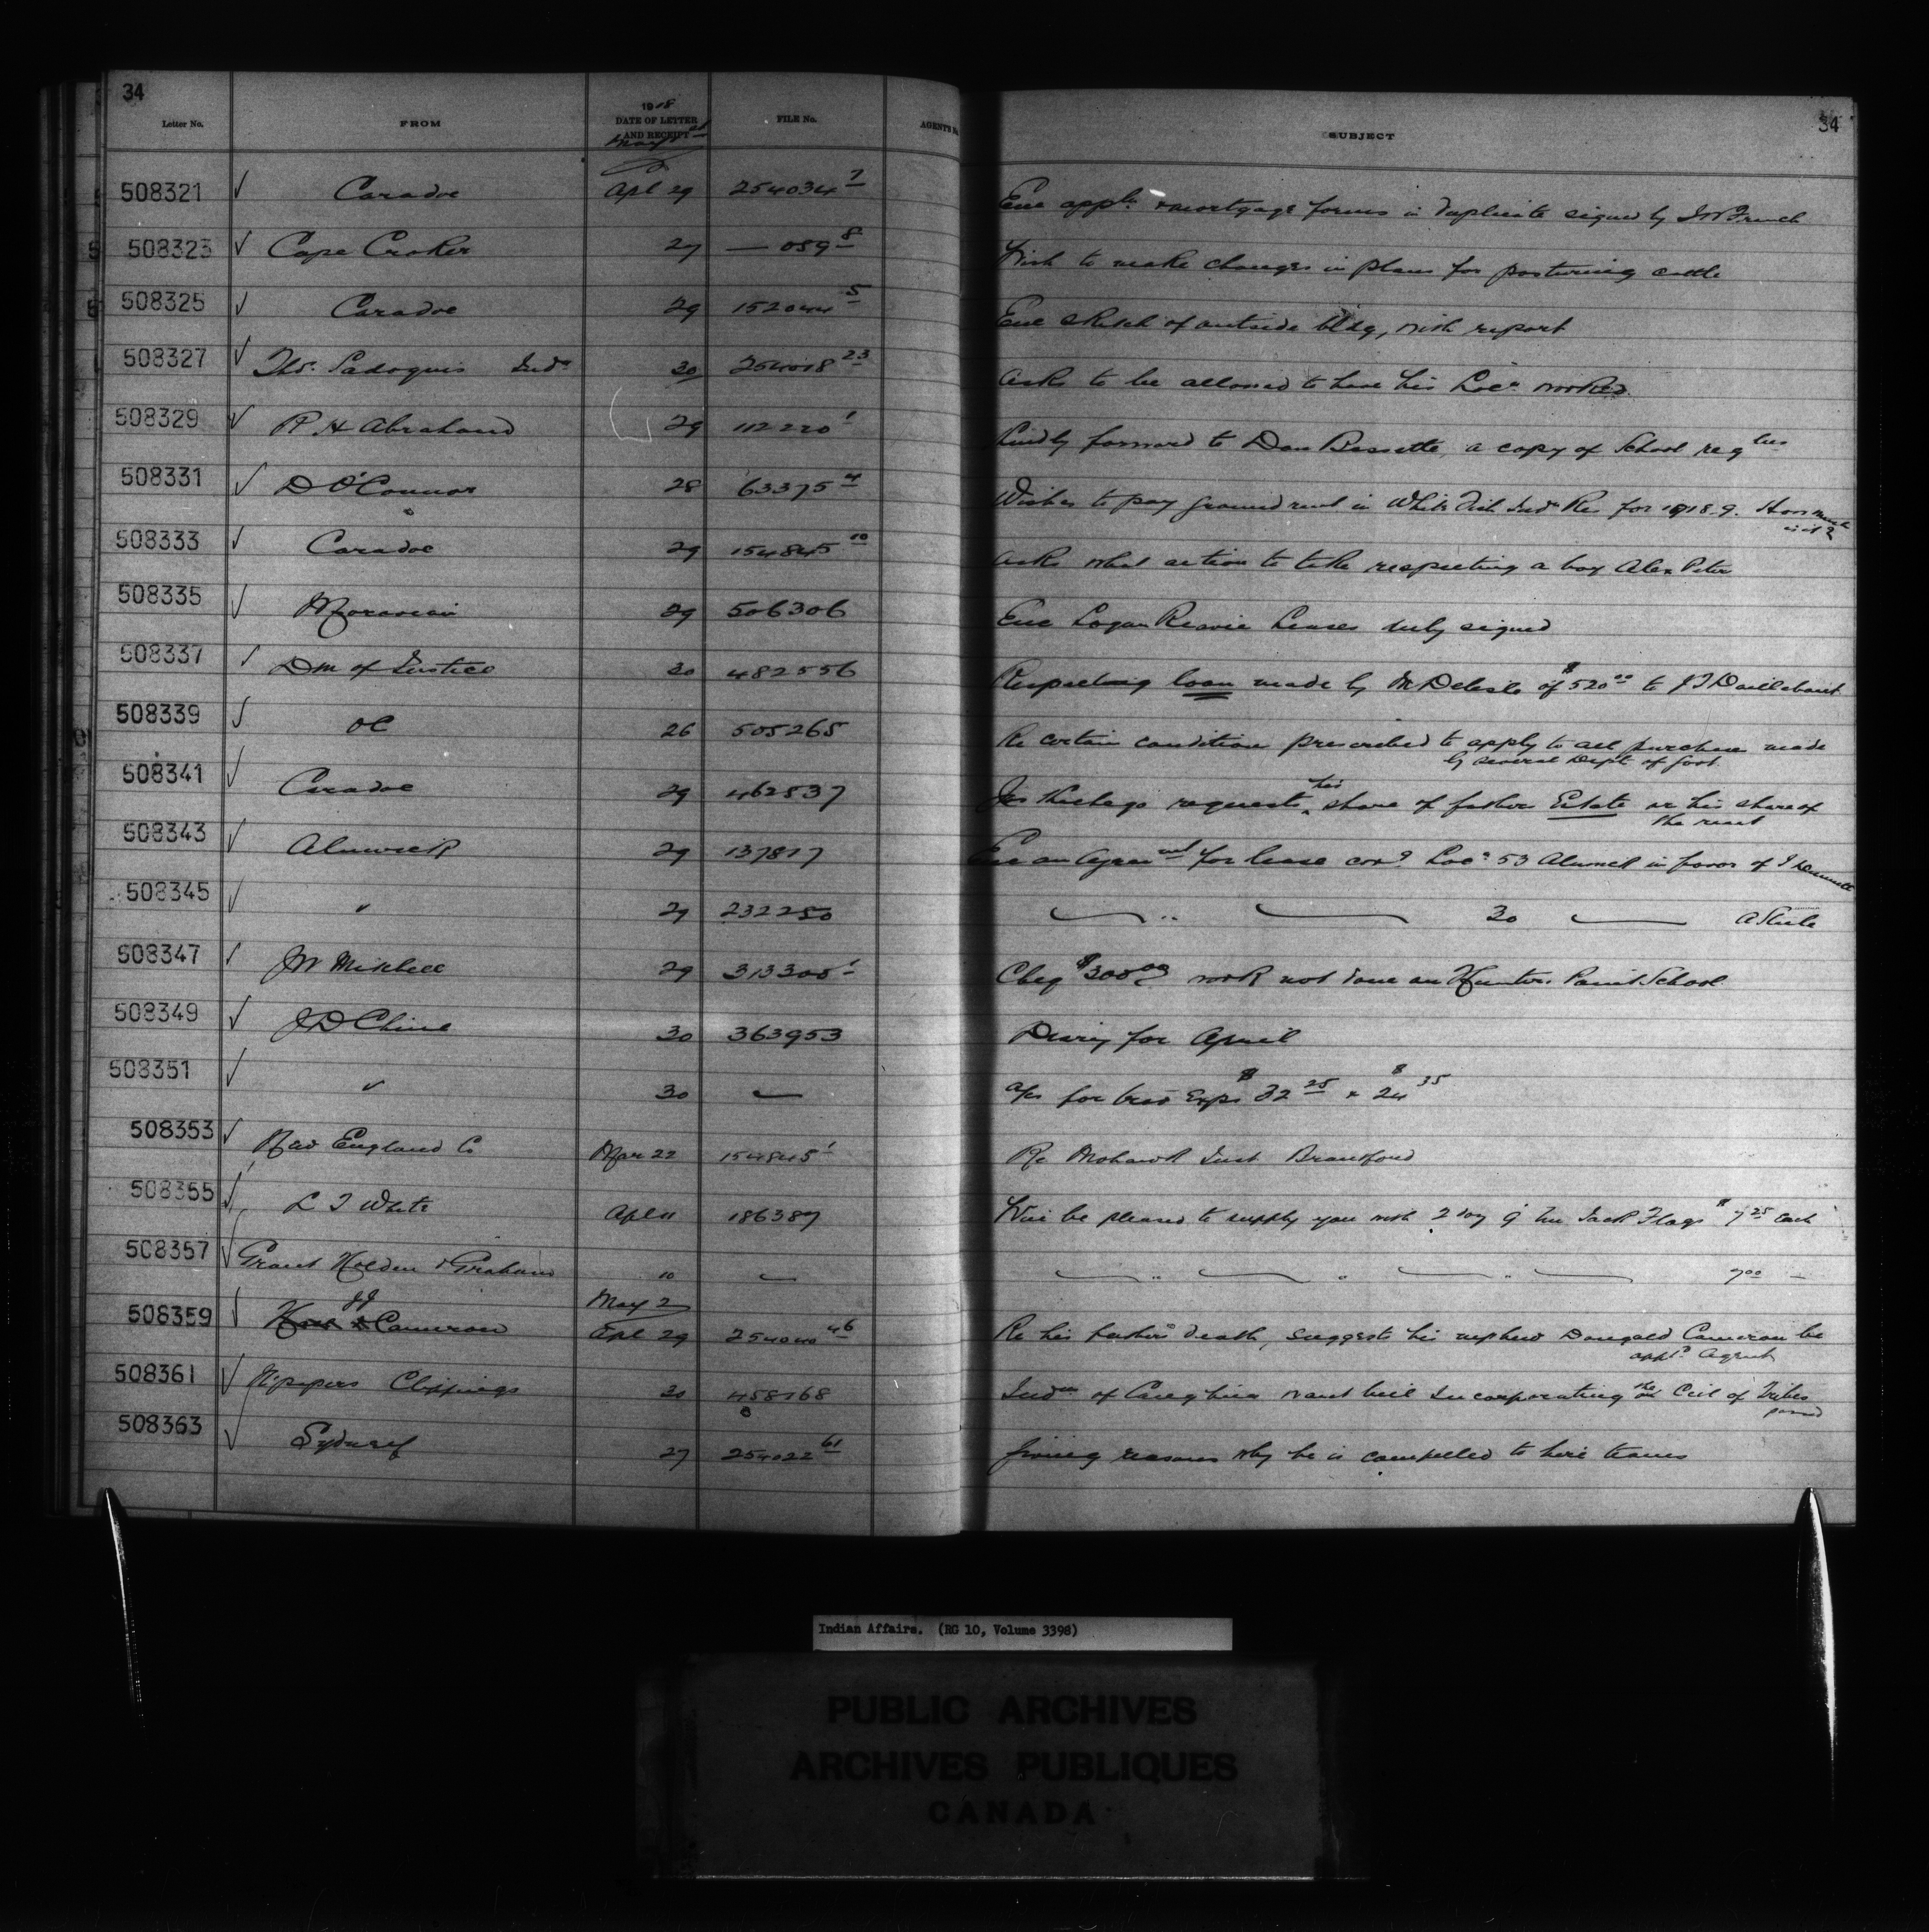 34
34
Letter No. FROM 1918 DATE OF LETTER AND RECEIPT FILE No. AGENT'S SUBJECT
May
508321 ✓ Caradoc Apl 29 254034 7 Enc appln & mortgage forms in duplicate signed by French
508323 ✓ Cape Croker 27 — 089 8 Wish to make changes in plans for pasturing cattle
508325 ✓ Caradoc 29 152044 5 Enc sketch of outside bldg, with report
508327 ✓ Thos. Sadoquis Indn 30 254018 23 Asks to be allowed to have his Locn worked
508329 ✓ R H Abraham 29 112220 1 Kindly forward to Dan Bassette a copy of School regtns
508331 ✓ D O'Connor 28 63375 4 Wishes to pay ground rent in White Fish Indn Re for 1918-9. How much
is it?
508333 ✓ Caradoc 29 154845 10 Asks what action to take respecting a boy Alex Peter
508335 ✓ Moravian 29 506306 Enc Logan Leases duly signed
508337 ✓ D M of Justice 30 482556 Respecting loan made by M Delisle of $520 00 to J T Daillebout
508339 ✓ OC 26 505265 Re certain condition prescribed to apply to all purchases made
by several Depts of Govt
508341 ✓ Caradoc 29 462537 requests his share of father Estate or his share of
the rent
508343 ✓ Alnwick 29 137817 Enc an Agreemt for lease covg Locn 53 Alnwick in favor of
508345 ✓ " 29 232250 " 30 A Steele
508347 ✓ JW Mitchell 29 313300 1 Cheq $300 00 work not done on Hunters Point School
508349 ✓ J D Chene 30 363953 Diary for April
508351 ✓ " 30 — a/cs for trav Exps $32 25 & $24 35
508353 ✓ New England Co Mar 22 154845 1 Re Mohawk Inst Brantford
508355 ✓ L T White Apl 11 186387 Will be pleased to supply you with 2 doz 9' Un Jack Flags $7 25 each
508357 ✓ Grant Holden & Graham 10 — " " " 7 00 —
May 2
508359 ✓ JJ Cameron Apl 29 254040 46 Re his father's death, suggests his nephew Dougald Cameron be
apptd Agent
508361 ✓ N'papers Clippings 30 458168 Indns of Caughna want bill Incorporating the Ccil of Tribes
passed
508363 ✓ Sydney 27 254022 61 Giving reasons why he is compelled to hire teams
Indian Affairs. (RG 10, Volume 3398)
PUBLIC ARCHIVES
ARCHIVES PUBLIQUES
CANADA